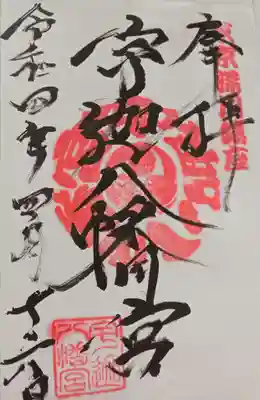 奉拝
宇迦八幡宮
令和四年四月十六日
宇迦八幡宮